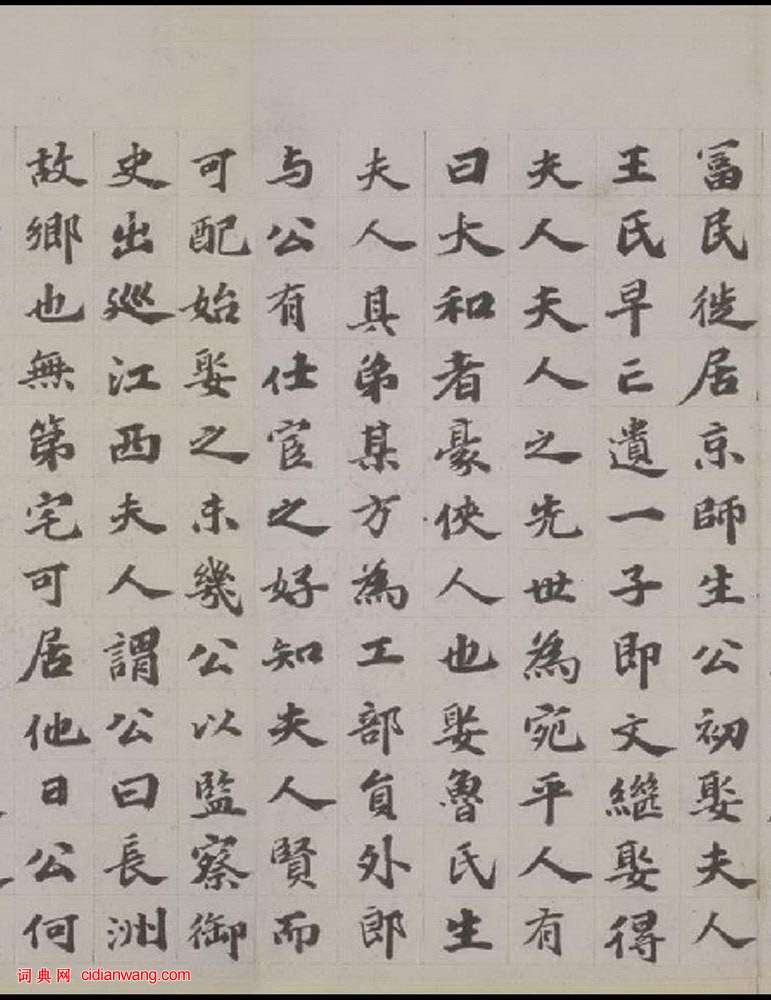 冨民徙居京師生公初娶夫人
王氏早亡遺一子即文繼娶得
夫人夫人之先世為宛平人有
曰大和者豪俠人也娶魯氏生
夫人其弟某方為工部負外郎
与公有仕宦之好知夫人賢而
可配始娶之未幾公以監察御
史出巡江西夫人謂公曰長洲
故鄉也無第宅可居他日公何
词典网 cidianwang.com